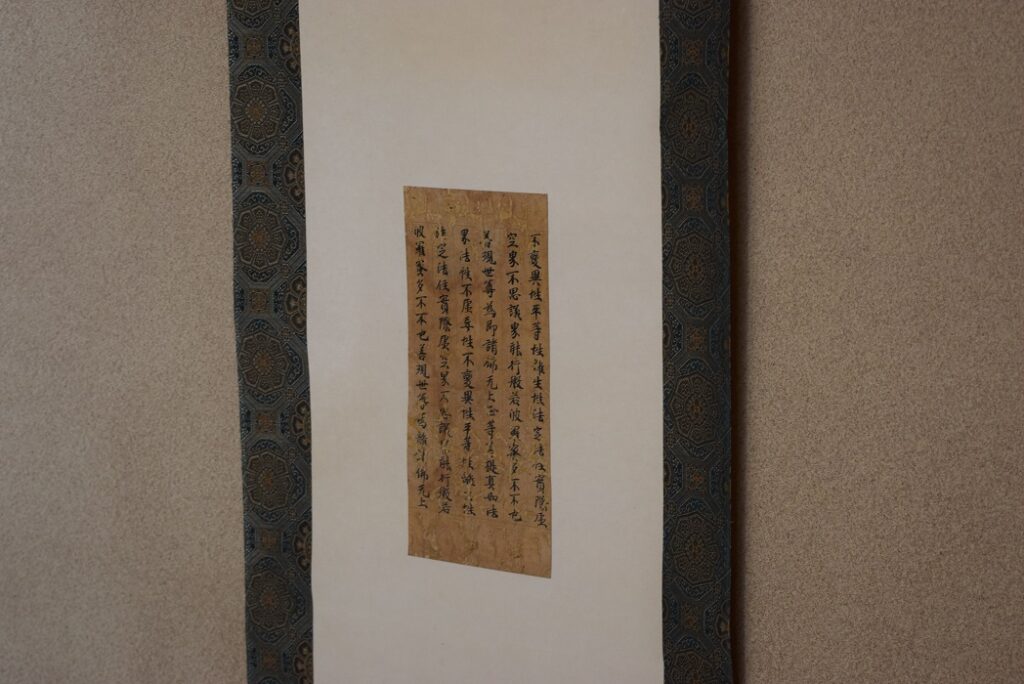 不變異性平等性離生性法定法住實際虛
空界不思議界能行般若波羅蜜多不不也
善現世尊為即諸佛无上正等菩提真如法
界法性不虛妄性不變異性平等性離生性
法定法住實際虛空界不思議界能行般若
波羅蜜多不不也善現世尊為離諸佛无上